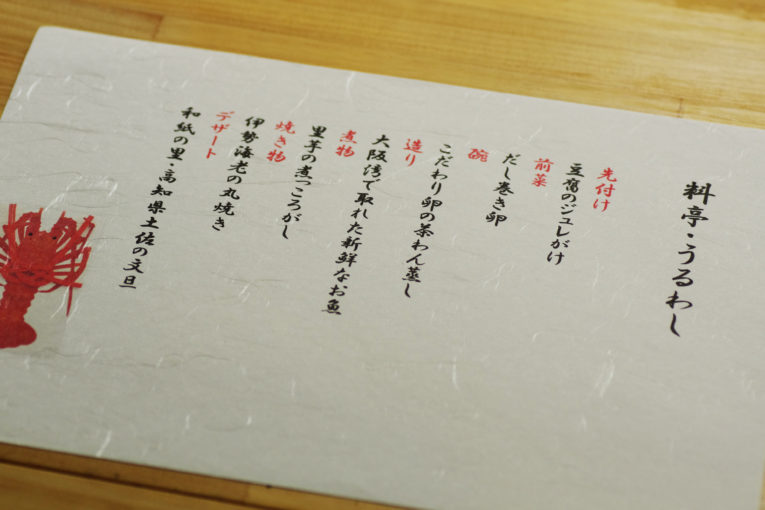 料亭・うるわし
先付け
豆腐のジュレがけ
前菜
だし巻き卵
碗
こだわり卵の茶わん蒸し
造り
大阪湾で取れた新鮮なお魚
煮物
里芋の煮っころがし
焼き物
伊勢海老の丸焼き
デザート
和紙の里・高知県土佐の文旦